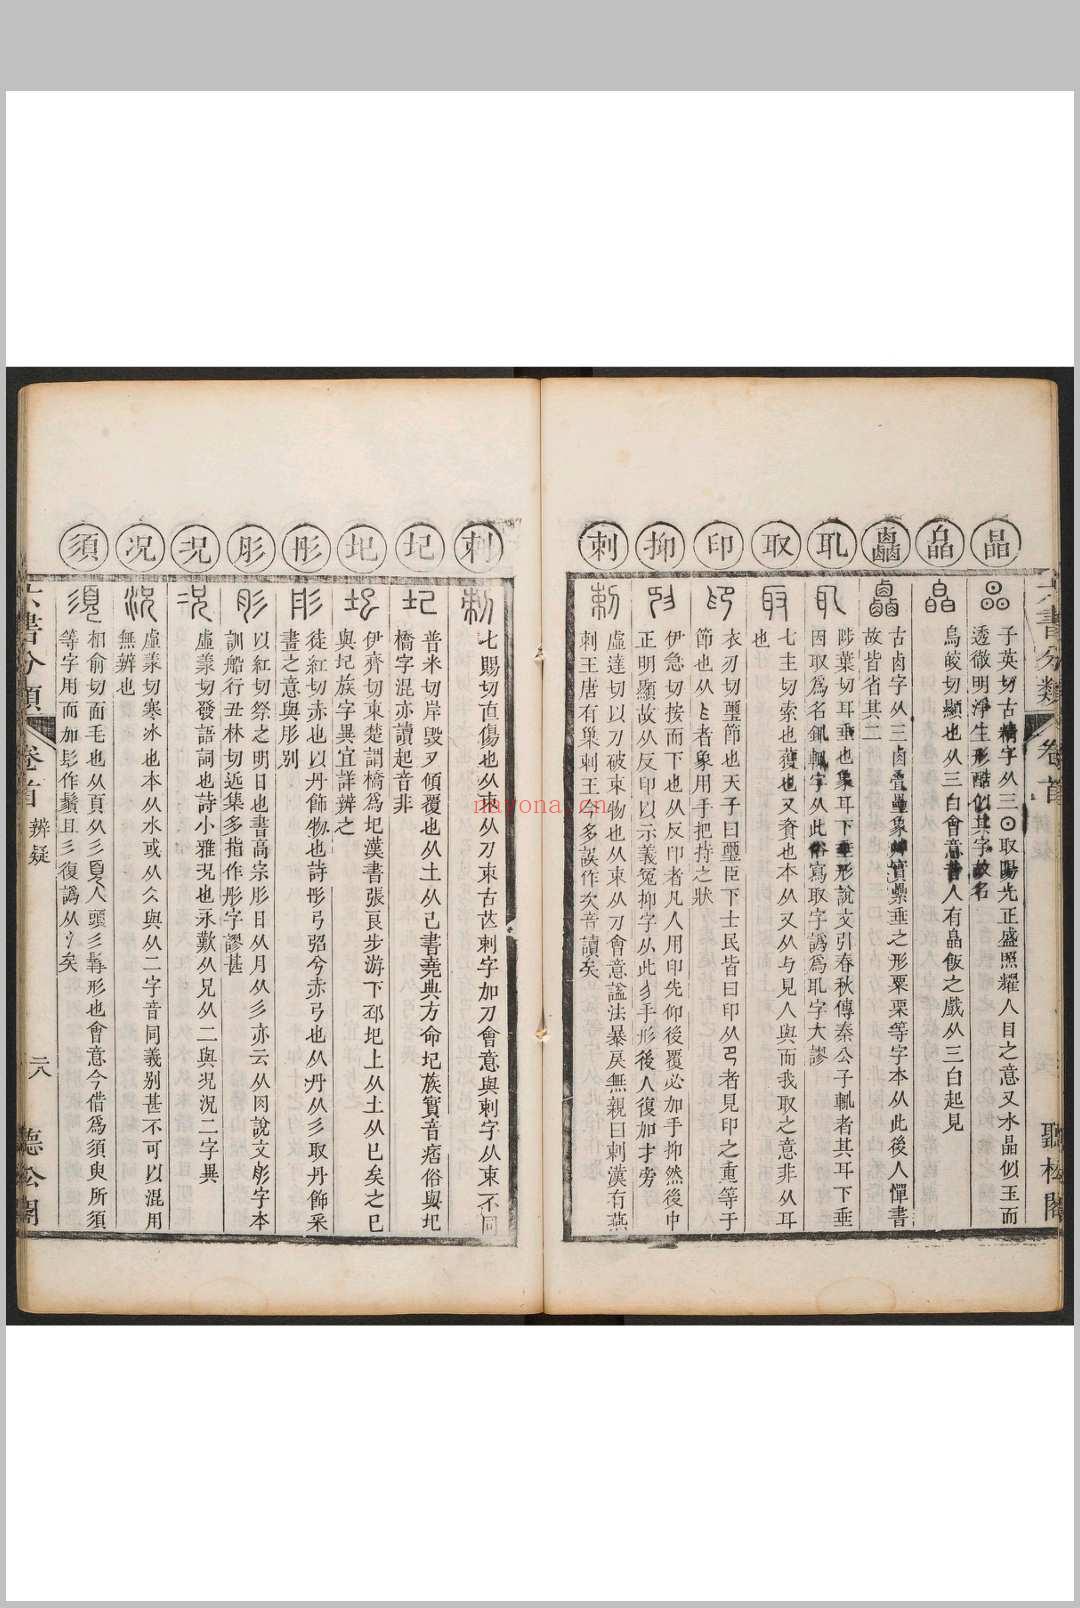 六書分類 卷首 聽松閣
晶
子英切古精字从三⊙取陽光正盛照耀人目之意又水晶似玉而
透徹明淨生形酷似其字故名
皛
烏皎切顯也从三白會意昔人有皛飯之戲从三白起見
古卤字从三卤疊壘象艸實纍垂之形粟栗等字本从此後人憚書
故皆省其二
耴
陟葉切耳垂也象耳下垂形說文引春秋傳秦公子輒者其耳下垂
因取爲名鉺輒字从此俗寫取字譌爲耴字大謬
取
七主切索也獲也又資也本从又从与見人與而我取之意非从耳
也
印
衣刃切璽節也天子曰璽臣下士民皆曰印从𠂤者見印之重等于
節也从𠃑者象用手把持之狀
抑
伊急切按而下也从反印者凡人用印先仰後覆必加手抑然後中
正明顯故从反印以示義冤抑字从此彡手形後人復加才旁
剌
虛達切以刀破束物也从束从刀會意謚法暴戾無親曰剌漢有燕
剌王唐有巢剌王今多誤作次音讀矣
刺
七賜切直傷也从朿从刀朿古芒刺字加刀會意與剌字从束不同
圮
普米切岸毀又傾覆也从土从己書堯典方命圮族實音痞俗與圯
橋字混亦讀起音非
圯
伊齊切東楚謂橋爲圯漢書張良步游下邳圯上从土从巳矣之巳
與圮族字異宜詳辨之
彤
徒紅切赤也以丹飾物也詩彤弓弨兮赤弓也从丹从彡取丹飾采
畫之意與肜別
肜
以紅切祭之明日也書高宗肜日从月从彡亦云从肉說文彤字本
訓船行丑林切近集多指作彤字謬甚
况
虛業切發語詞也詩小雅况也永歎从兄从二與況況二字異
况
虛業切寒冰也本从水或从仌與从二字音同義别甚不可以混用
無辨也
須
相俞切面毛也从頁从彡夏人頭彡髯形也會意今借爲須臾所須
等字用而加髟作鬚且彡復譌从氵矣
六書分類 卷首 辨疑 二八 聽松閣
nayona.cn